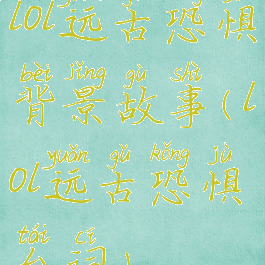 lol远古恐惧
bèi jǐng gù shì
背景故事(l
yuǎn gǔ kǒng jù
ol远古恐惧
tái cí
台词)